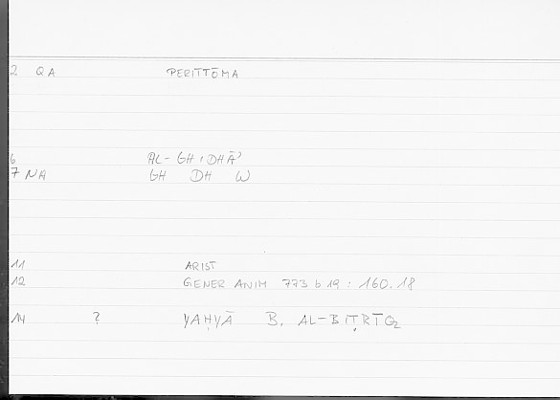 2 QA PERITTŌMA
6 AL-GHIDHĀʾ
7 NA GH DH W
11 ARIST
12 GENER ANIM 773 b 19 : 160.18
14 ? YAḤYĀ B. AL-BIṬRĪQ